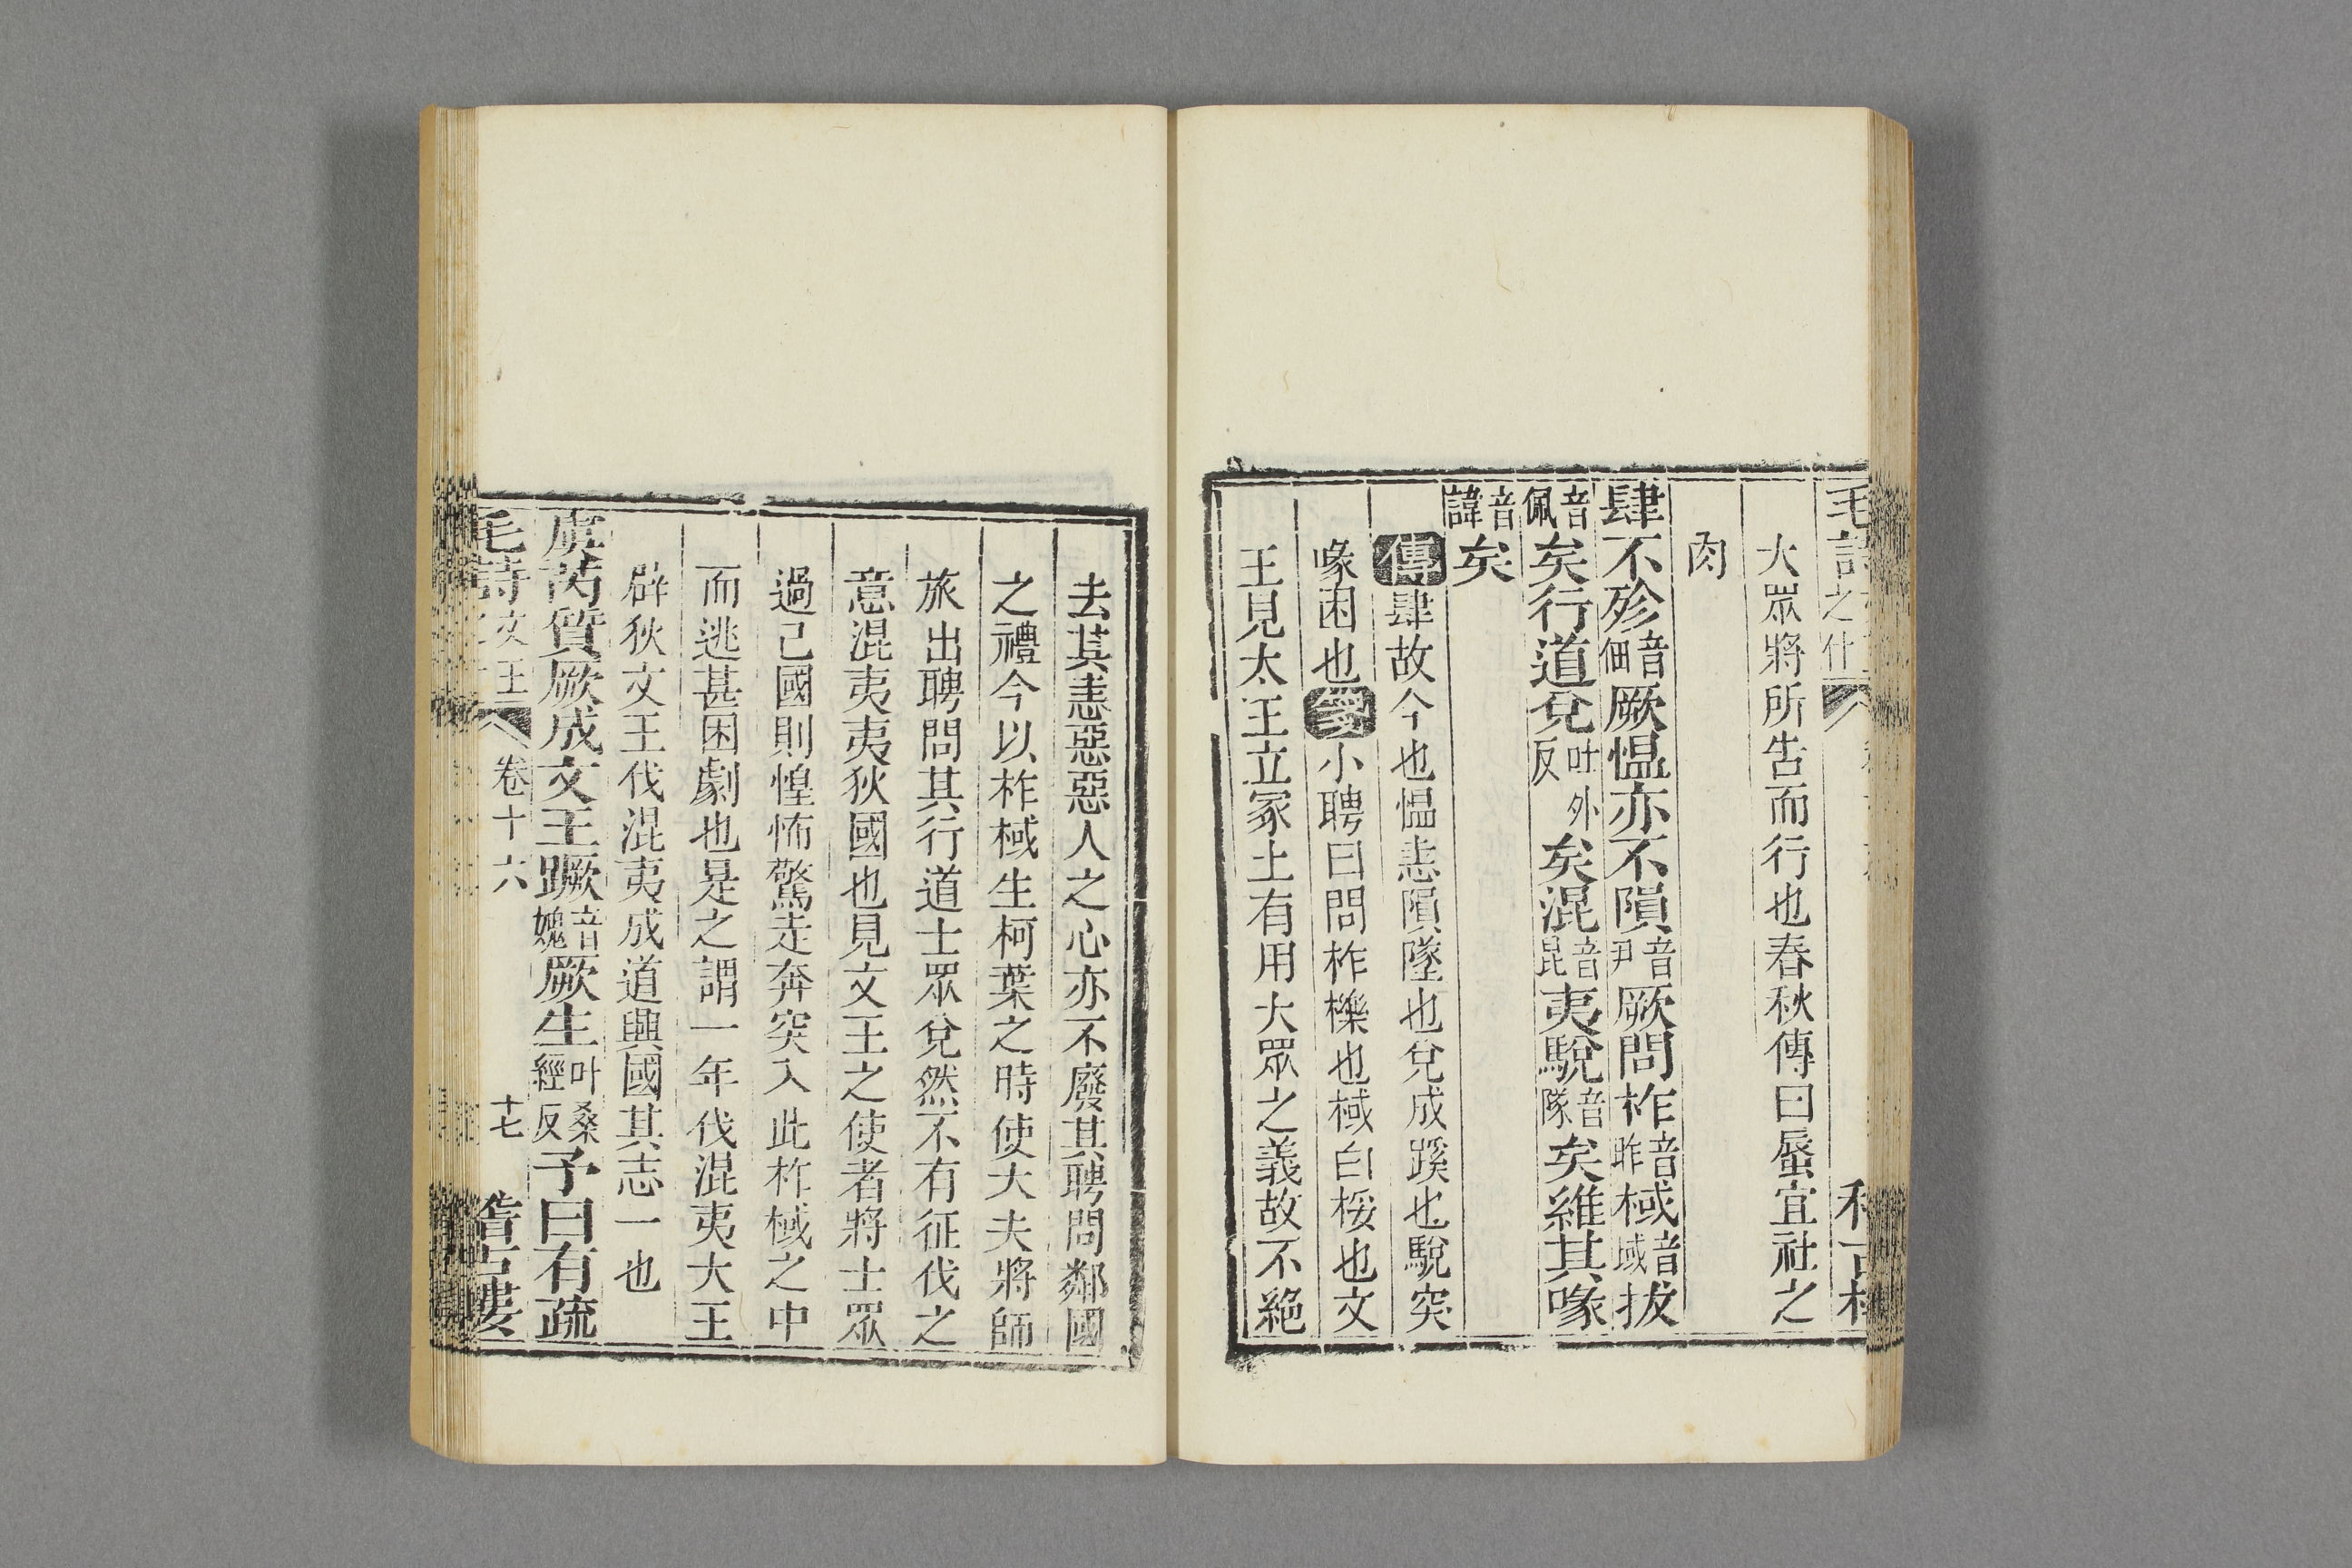 毛詩之什
大眾將所告而行也春秋傳曰蜃宜社之
肉
肆不殄音佃厥愠亦不隕音尹厥問柞音昨棫音域拔
音佩矣行道兌吐外反矣混音昆夷駾音隊矣維其喙
音諱矣
傳肆故今也愠恚隕墜也兌成蹊也駾突
喙困也箋小聘曰問柞櫟也棫白桵也文
王見太王立冢土有用大眾之義故不絕
去其恚惡惡人之心亦不廢其聘問鄰國
之禮今以柞棫生柯葉之時使大夫將師
旅出聘問其行道士眾兌然不有征伐之
意混夷夷狄國也見文王之使者將士眾
過己國則惶怖驚走奔突入此柞棫之中
而逃甚困劇也是之謂一年伐混夷大王
辟狄文王伐混夷成道興國其志一也
虞芮質厥成文王蹶音媿厥生叶桑經反予曰有疏
毛詩文王 卷十六 十七